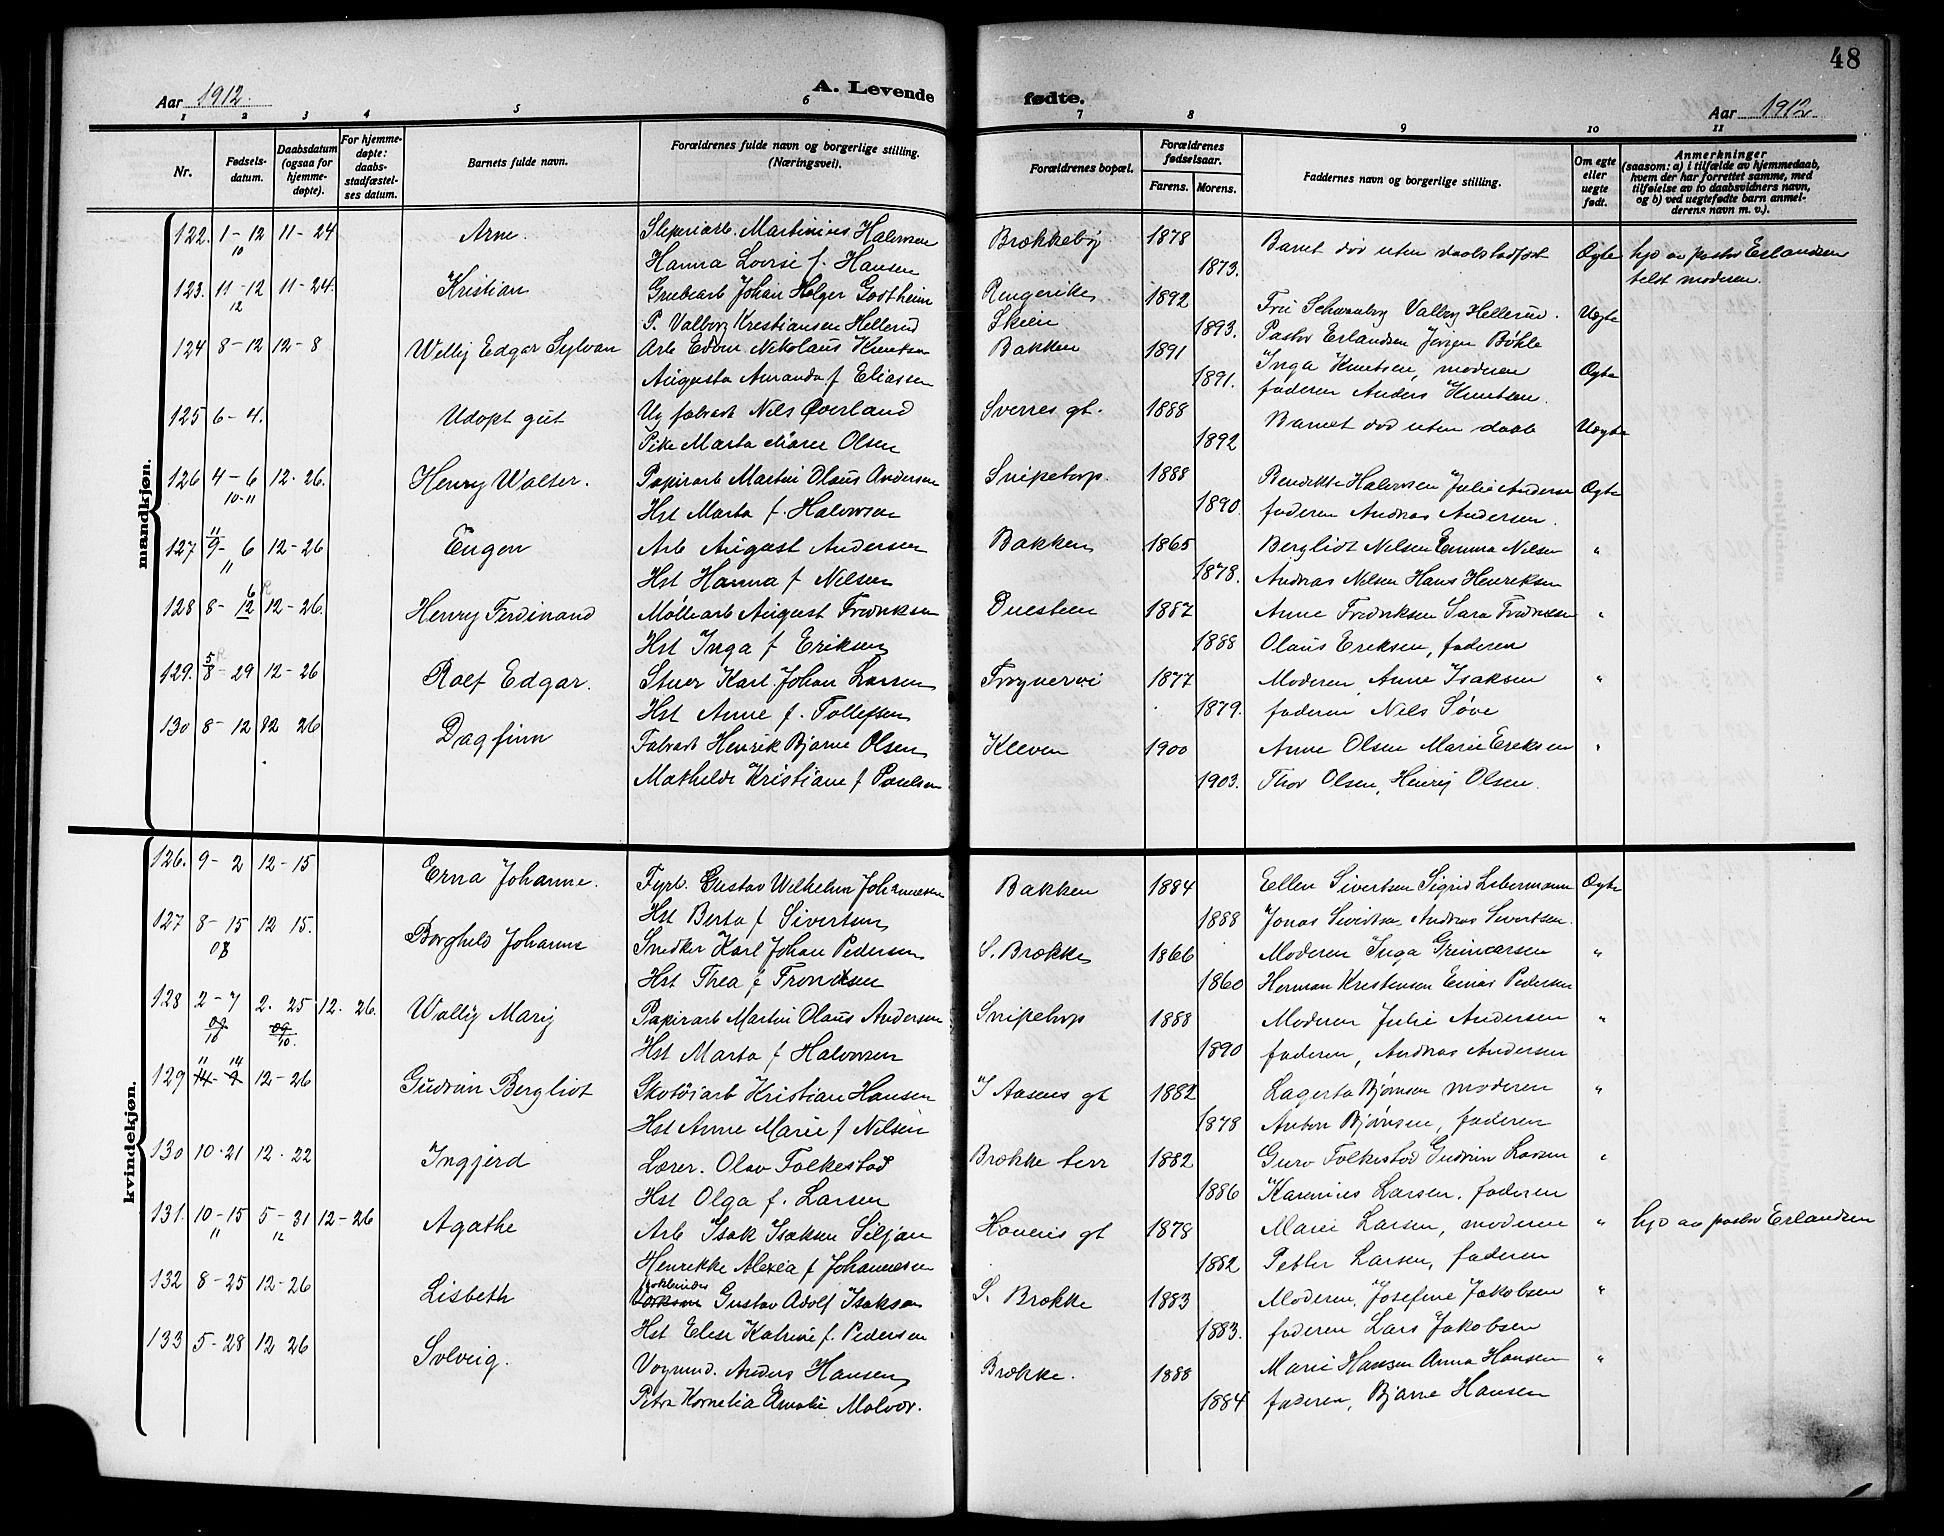 48
Aar 1912.
A. Levende fødte.
Aar 1912
1 2 3 4 5 6 7 8 9 10 11
Nr.
Fødsels-
datum.
Daabsdatum
(ogsaa for
hjemme-
døpte).
For hjemme-
døpte:
daabs-
stadfæstel-
ses datum.
Barnets fulde navn.
Forældrenes fulde navn og borgerlige stilling.
(Næringsvei).
Forældrenes bopæl.
Forældrenes
fødselsaar.
Farens. Morens.
Faddernes navn og borgerlige stilling.
Om egte
eller
uegte
født.
Anmerkninger
(saasom: a) i tilfælde av hjemmedaab,
hvem der har forrettet samme, med
tilføielse av to daabsvidners navn,
og b) ved uegtefødte barn anmel-
derens navn m. v.).
mandkjøn.
122. 1-12 11-24 Arne. Martinius Halvorsen Brækkebøj 1878 Barnet død uten daabstadfæst Ogte hjd av pastor Erlandsen
10 Hanna Lovise f. Hansen 1873. moderen.
123. 11-12 11-24. Kristian Grubearb Johan Holger Godtheim Ringerike 1892 Fru Valborg Hellerud. Uegte
12 P. Valborg Kristiansen Hellerud Skien 1893. Pastor Erlandsen Jørgen Bøhle
124 8-12 12-8 Willy Edgar Sylvan Arb Edvin Nikolaus Knutsen Bakken 1891 Inga Knutsen, moderen Ogte
Augusta Amanda f Eliassen 1891. faderen Anders Knutsen.
125 6-4. Udøpt gut Ug fabrarb Nils Øverland Sverres gt. 1888 Barnet død uten daab Uegte
Pike Marta Marie Olsen 1892
126 4-6 12-26. Henry Walter. Papirarb Martin Olaus Andersen Snipetorp. 1888 Benedikte Halvorsen Julie Andersen Ogte
10-11 Hst Marta f. Halvorsen 1890. faderen Andras Andersen.
127 11/9-6 12-26 Eugen Arb August Andersen Bakken 1865 Bergliot Nilsen Emma Nilsen "
11 Hst Hanna f Nilsen 1878. Andras Nilsen Hans Henriksen
128 8-12 6 12-26. Henry Ferdinand Møllearb August Fredriksen Duesteen 1887 Anne Fredriksen Sara Fredriksen "
Hst Inga f Eriksen 1888 Olaus Eriksen, faderen
129. 5/8-29 12-26 Rolf Edgar. Stuer Karl Johan Larsen Frognervei 1877 Moderen Anne Isaksen "
Hst Anne f. Tollefsen 1879. faderen Nils Søve
130 8-12 12 26 Dagfinn Fabrarb Henrik Bjarne Olsen Kleven 1900 Anne Olsen Marie Eriksen "
Mathilde Kristiane f Paulsen 1903. Thor Olsen, Henrij Olsen.
kvindekjøn.
126. 9-2 12-15 Erna Johanne. Fyrb. Gustav Wilhelm Johannesen Bakken 1884 Ellen Sivertsen Sigrid Ogte
Hst Berta f Sivertsen 1888 Jonas Sivertsen Andras Sivertsen.
127 8-15 12 15. Borghild Johanne Snedker Karl Johan Pedersen S. Brække 1866 Moderen Inga "
08 Hst Thea f Trondsen 1860 Herman Kristensen Einar Pedersen
128 2-7 2. 25 12. 26. Wally Marij Papirarb Martin Olaus Andersen Snipetorp 1888 Moderen Julie Andersen "
09/10 09/10. Hst Marta f Halvorsen 1890 faderen, Andras Andersen
129 11 14 14-9 12-26 Gudrun Bergliot Skotøiarb Kristian Hansen I Aasens gt 1882 Lagerta Bjørnsen moderen "
Hst Anne Marie f Nilsen 1878 Anton Bjørnsen, faderen
130 10.21 12.22 Ingjerd Lærer. Olav Folkestad Brække terr 1882 Guro Folkestad Gudrun Larsen "
Hst Olga f. Larsen 1886 Karenius Larsen. faderen
131. 10-15 5-31 12-26 Agathe Arb Isak Isaksen Siljan Hauens gt 1878 Marie Larsen, moderen " hjd av pastor Erlandsen
11 12 Henrikke Alexea f Johannesen 1882 Petter Larsen, faderen
132 8-25 12-26 Lisbeth Gustav Adolf Isaksen S. Brække 1883 Moderen, Josefine Jakobsen "
Hst Elise Katrine f. Pedersen 1883. faderen Lars Jakobsen
133 5-28 12 26 Solveig. Vognmd. Anders Hansen Brække. 1888 Marie Hansen Anna Hansen "
Petra Kornelia Emalie Molvær. 1884 faderen, Bjarne Hansen